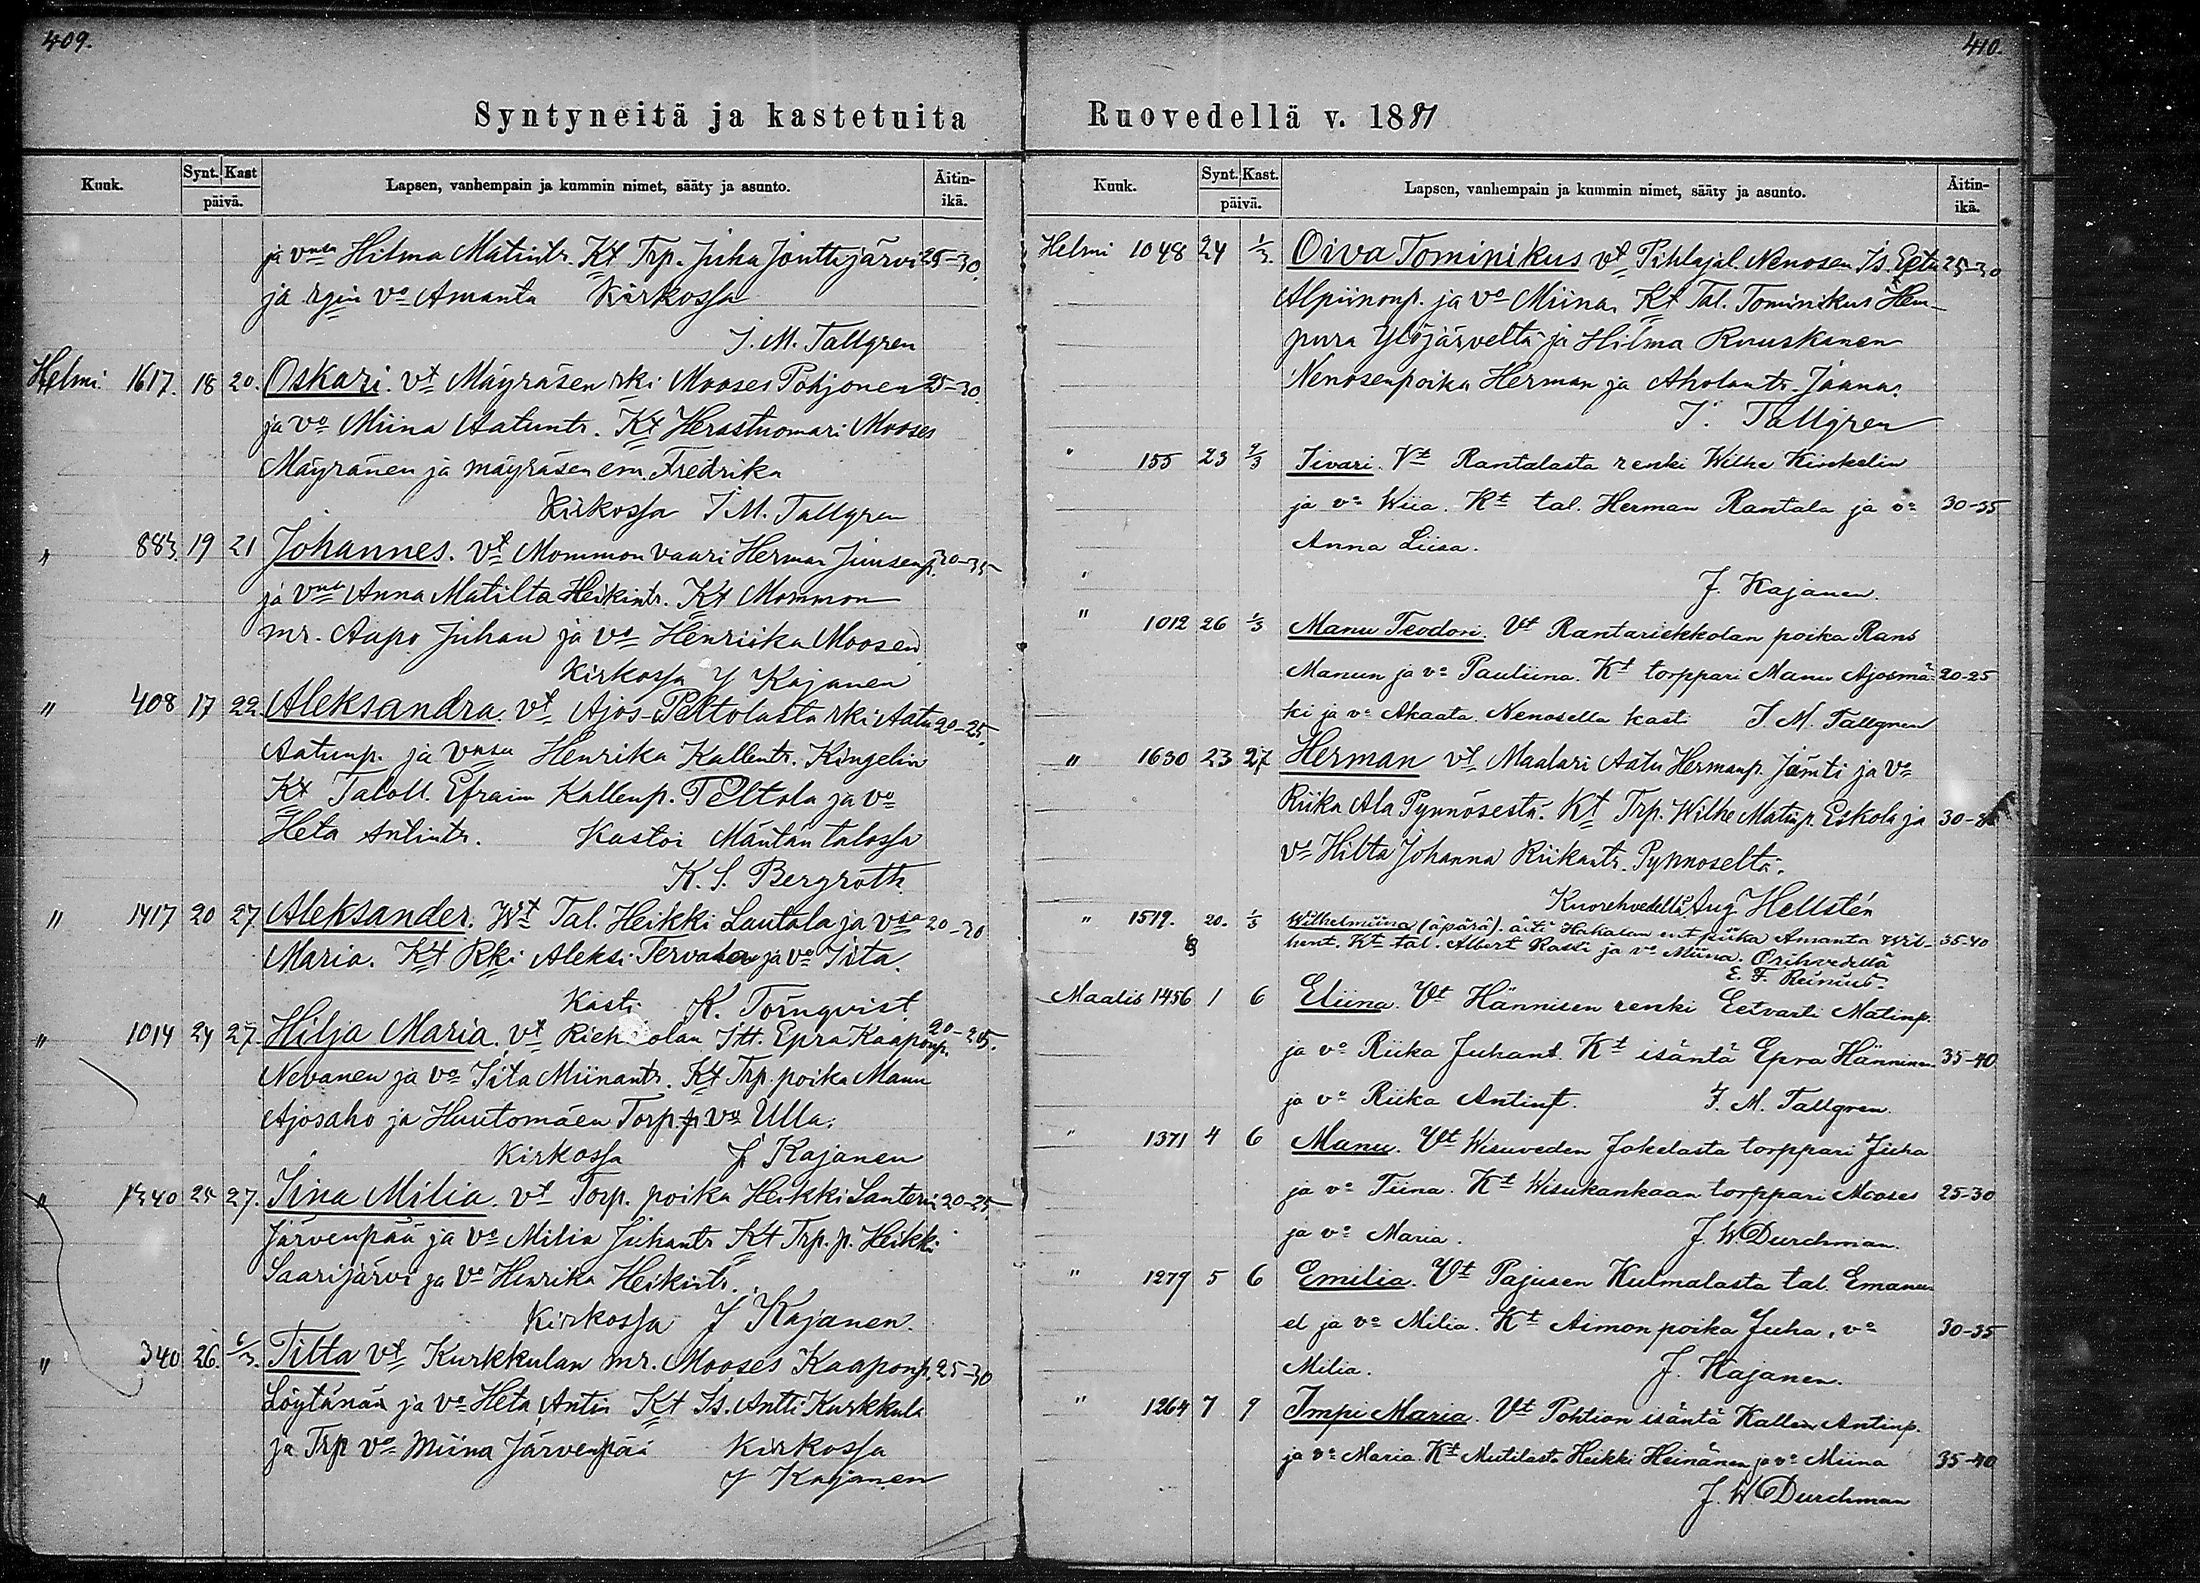 409.
Syntyneitä ja kastetuita
Kuuk. Synt. Kast Lapsen, vanhempain ja kummin nimet, sääty ja asunto. Äitin-
päivä. ikä.
ja vnsa Hilma Matintr. Kt Trp. Juha Jonttajärvi 25-30.
ja rgin vo Amanta Kirkossa
J. M. Tallgren
Helmi 1617. 18 20. Oskari. vt Mäyräsen rki Mooses Pohjonen 25-30.
ja vo Miina Aatuntr. Kt Herastuomari Mooses
Mäyränen ja mäyräsen em. Fredrika
Kirkossa J M. Tallgren
" 883. 19 21 Johannes. vt Mommon vaari Herman Juusenp. 30-35
ja vnsa Anna Matilta Heikintr. Kt Mommon
mr. Aapo Juhan ja vo Henriika Moosen
Kirkossa J Kajanen
" 408 17 22. Aleksandra. vt Ajos-Peltolasta rki Aatu 20-25.
Aatunp. ja vnsa Henrika Kallentr. Kingelin
Kt Taloll. Efraim Kallenp. Peltola ja vo
Heta Antintr. Kastoi Mäntän talossa
K. S. Bergroth
" 1417 20 27. Aleksander. Wt Tal. Heikki Lautala ja vsa 20-30
Maria. Kt Rki Aleksi Tervala ja vo Iita.
Kasti K. Törnqvist
" 1014 24 27. Hilja Maria. vt Itt. Epra Kaaponp. 20-25.
Nevanen ja vo Iita Miinantr. Kt Trp. poika Manu
Ajosaho ja Huutomäen Torp. vo Ulla.
Kirkossa J Kajanen
" 1340 25 27. Iina Milia. vt Torp. poika Heikki Santeri 20-25.
Järvenpää ja vo Milia Juhantr Kt Trp. p. Heikki
Saarijärvi ja vo Henrika Heikintr.
Kirkossa J Kajanen.
" 340 26. 6/3. Titta vt Kurkkulan mr. Mooses Kaaponp. 25-30
Löytänän ja vo Heta Antin Kt Is. Antti Kurkkula
ja Trp vo Miina Järvenpää Kirkossa
J Kajanen
410.
Ruovedellä v. 1887
Kuuk. Synt. Kast. Lapsen, vanhempain ja kummin nimet, sääty ja asunto. Äitin-
päivä. ikä.
Helmi 1048 24 1/3. Oiva Tominikus vt Pihlajal. Nenosen Is. Eetu 25-30
Alpiinonp. ja vo Miina. Kt Tal. Tominikus Hem-
pura Ylöjärveltä ja Hilma Ruuskanen
Nenosenpoika Herman ja Aholantr. Jaana.
J. Tallgren
" 155 23 2/3 Iivari. Vt Rantalasta renki Wilhe Kinkelin
ja vo Wiia. Kt tal. Herman Rantala ja vo 30-35
Anna Liisa.
J. Kajanen.
" 1012 26 1/3 Manu Teodori. Vt Rantariekkolan poika Rans
Manun ja vo Pauliina. Kt torppari Manu Ajosmä- 20-25
ki ja vo Akaata. Nenosella kasti J M. Tallgren
" 1630 23 27 Herman vt Maalari Aatu Hermanp. Jämti ja vo
Riika Ala Pynnösestä. Kt Trp. Wilhe Matinp. Eskola ja
vo Hilta Johanna Riikantr. Pynnöseltä.
Kuorehvedellä Aug Hellstén
" 1519. 20. 1/3 Wilhelmiina (äpärä). äiti Hakalan ent piika Amanta Wil- 35-40
hent. Kt tal. Albert Rasti ja vo Miina. Orihvedellä
E. F. Reinius.
Maalis 1456 1 6 Eliina. Vt Hännisen renki Eetvarti Matinp.
ja vo Riika Juhant. Kt isäntä Epra Hänninen 35-40
ja vo Riika Antint. J. M. Tallgren.
" 1371 4 6 Manu. Vt Wisuveden Jokelasta torppari Juha
ja vo Tiina. Kt Wisukankaan torppari Mooses 25-30
ja vo Maria. J. W. Durchman.
" 1279 5 6 Emilia. Vt Pajusen Kulmalasta tal. Emanu-
el ja vo Milia. Kt Aimon poika Juha, vo 30-35
Milia. J. Kajanen.
" 1264 7 9 Impi Maria. Vt Pohtion isäntä Kalle Antinp.
ja vo Maria. Kt Mutilasta Heikki Heinänen ja vo Miina 35-40
J. W. Durchman